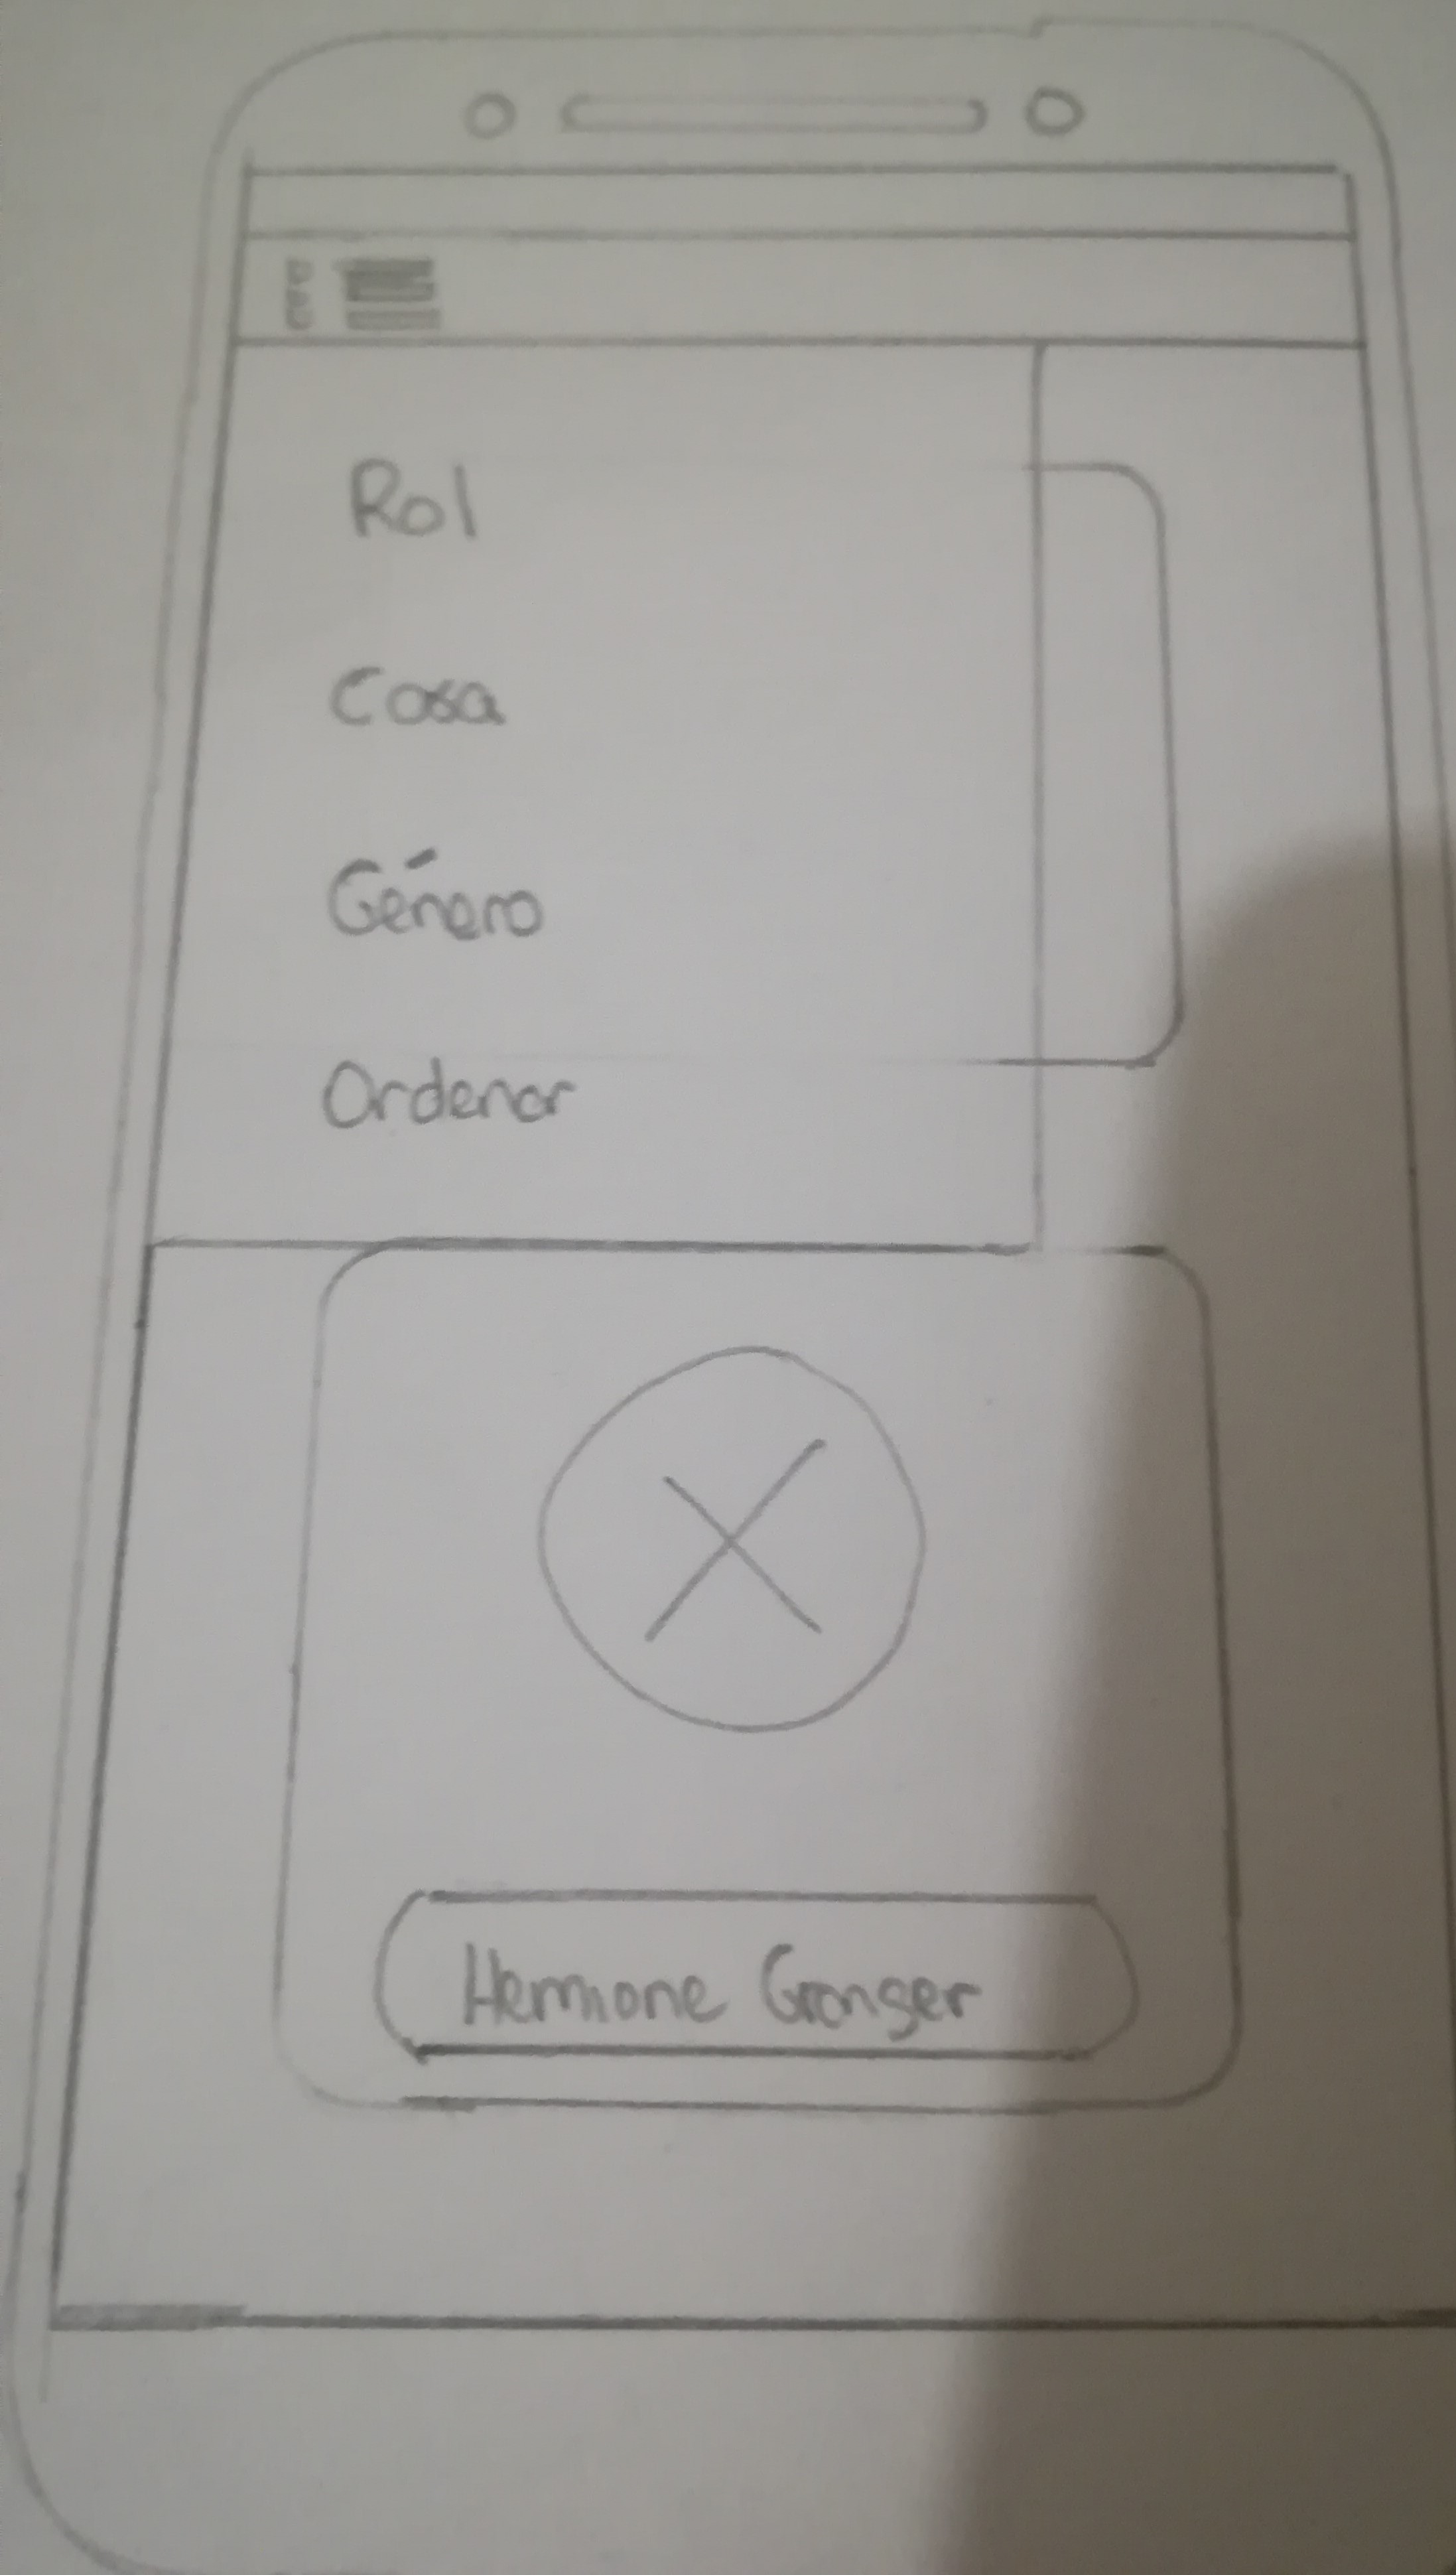 Rol
Casa
Género
Ordenar
Hermione Granger